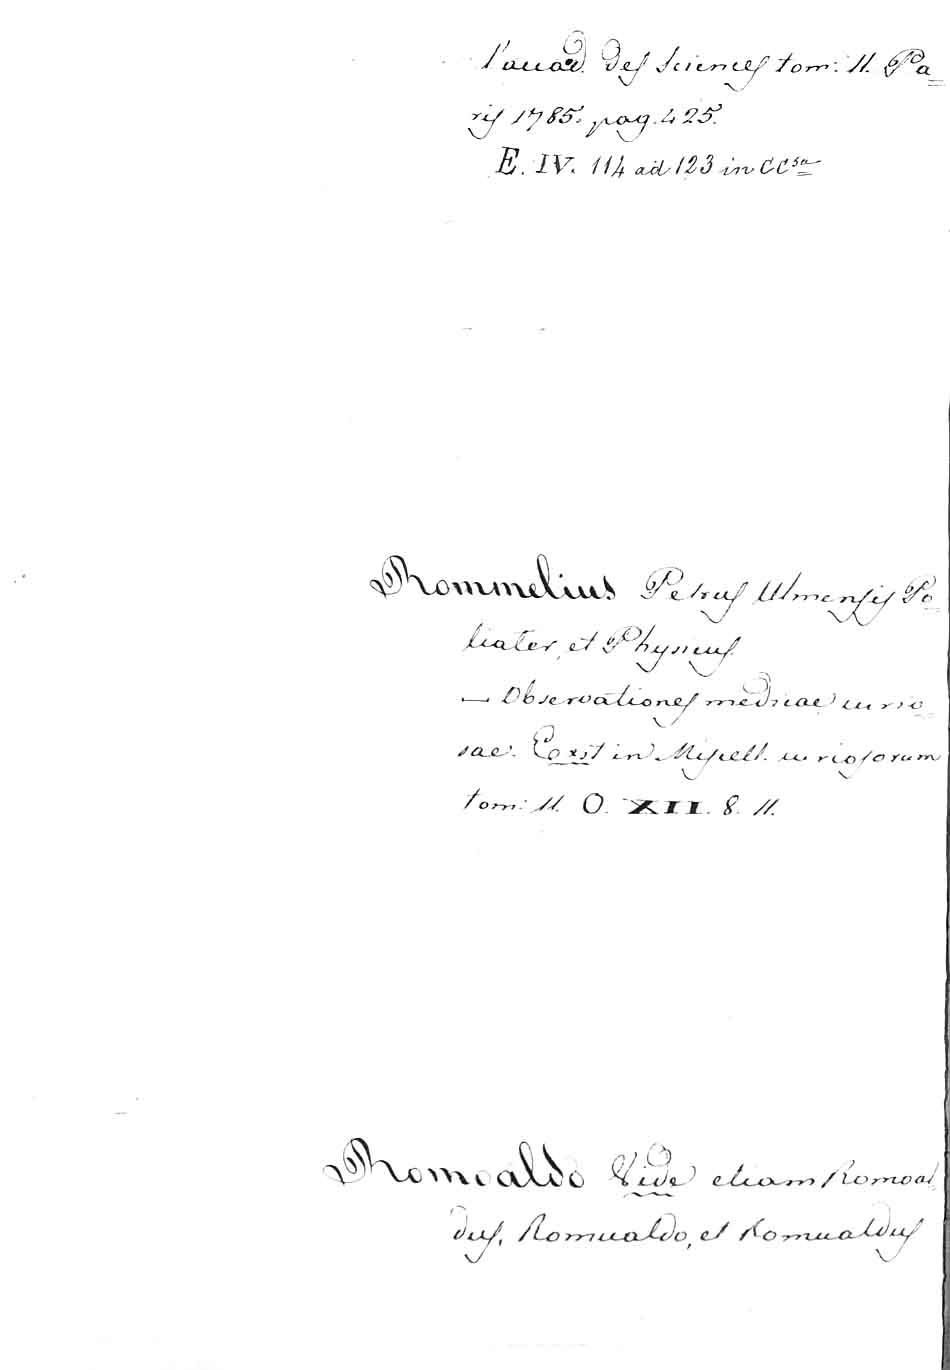 l'accad. des Sciences tom: II. Pa=
ris 1785. pag. 425.
E. IV. 114 ad 123 in CC^sa
Rommelius Petrus Ulmensis Po=
liater, et Physicus.
— Observationes medicae curio=
sae. Exst in Miscell. curiosorum
tom: II. O. XII. 8. II.
Romoaldo Vide etiam Romoal=
dus, Romualdo, et Romualdus